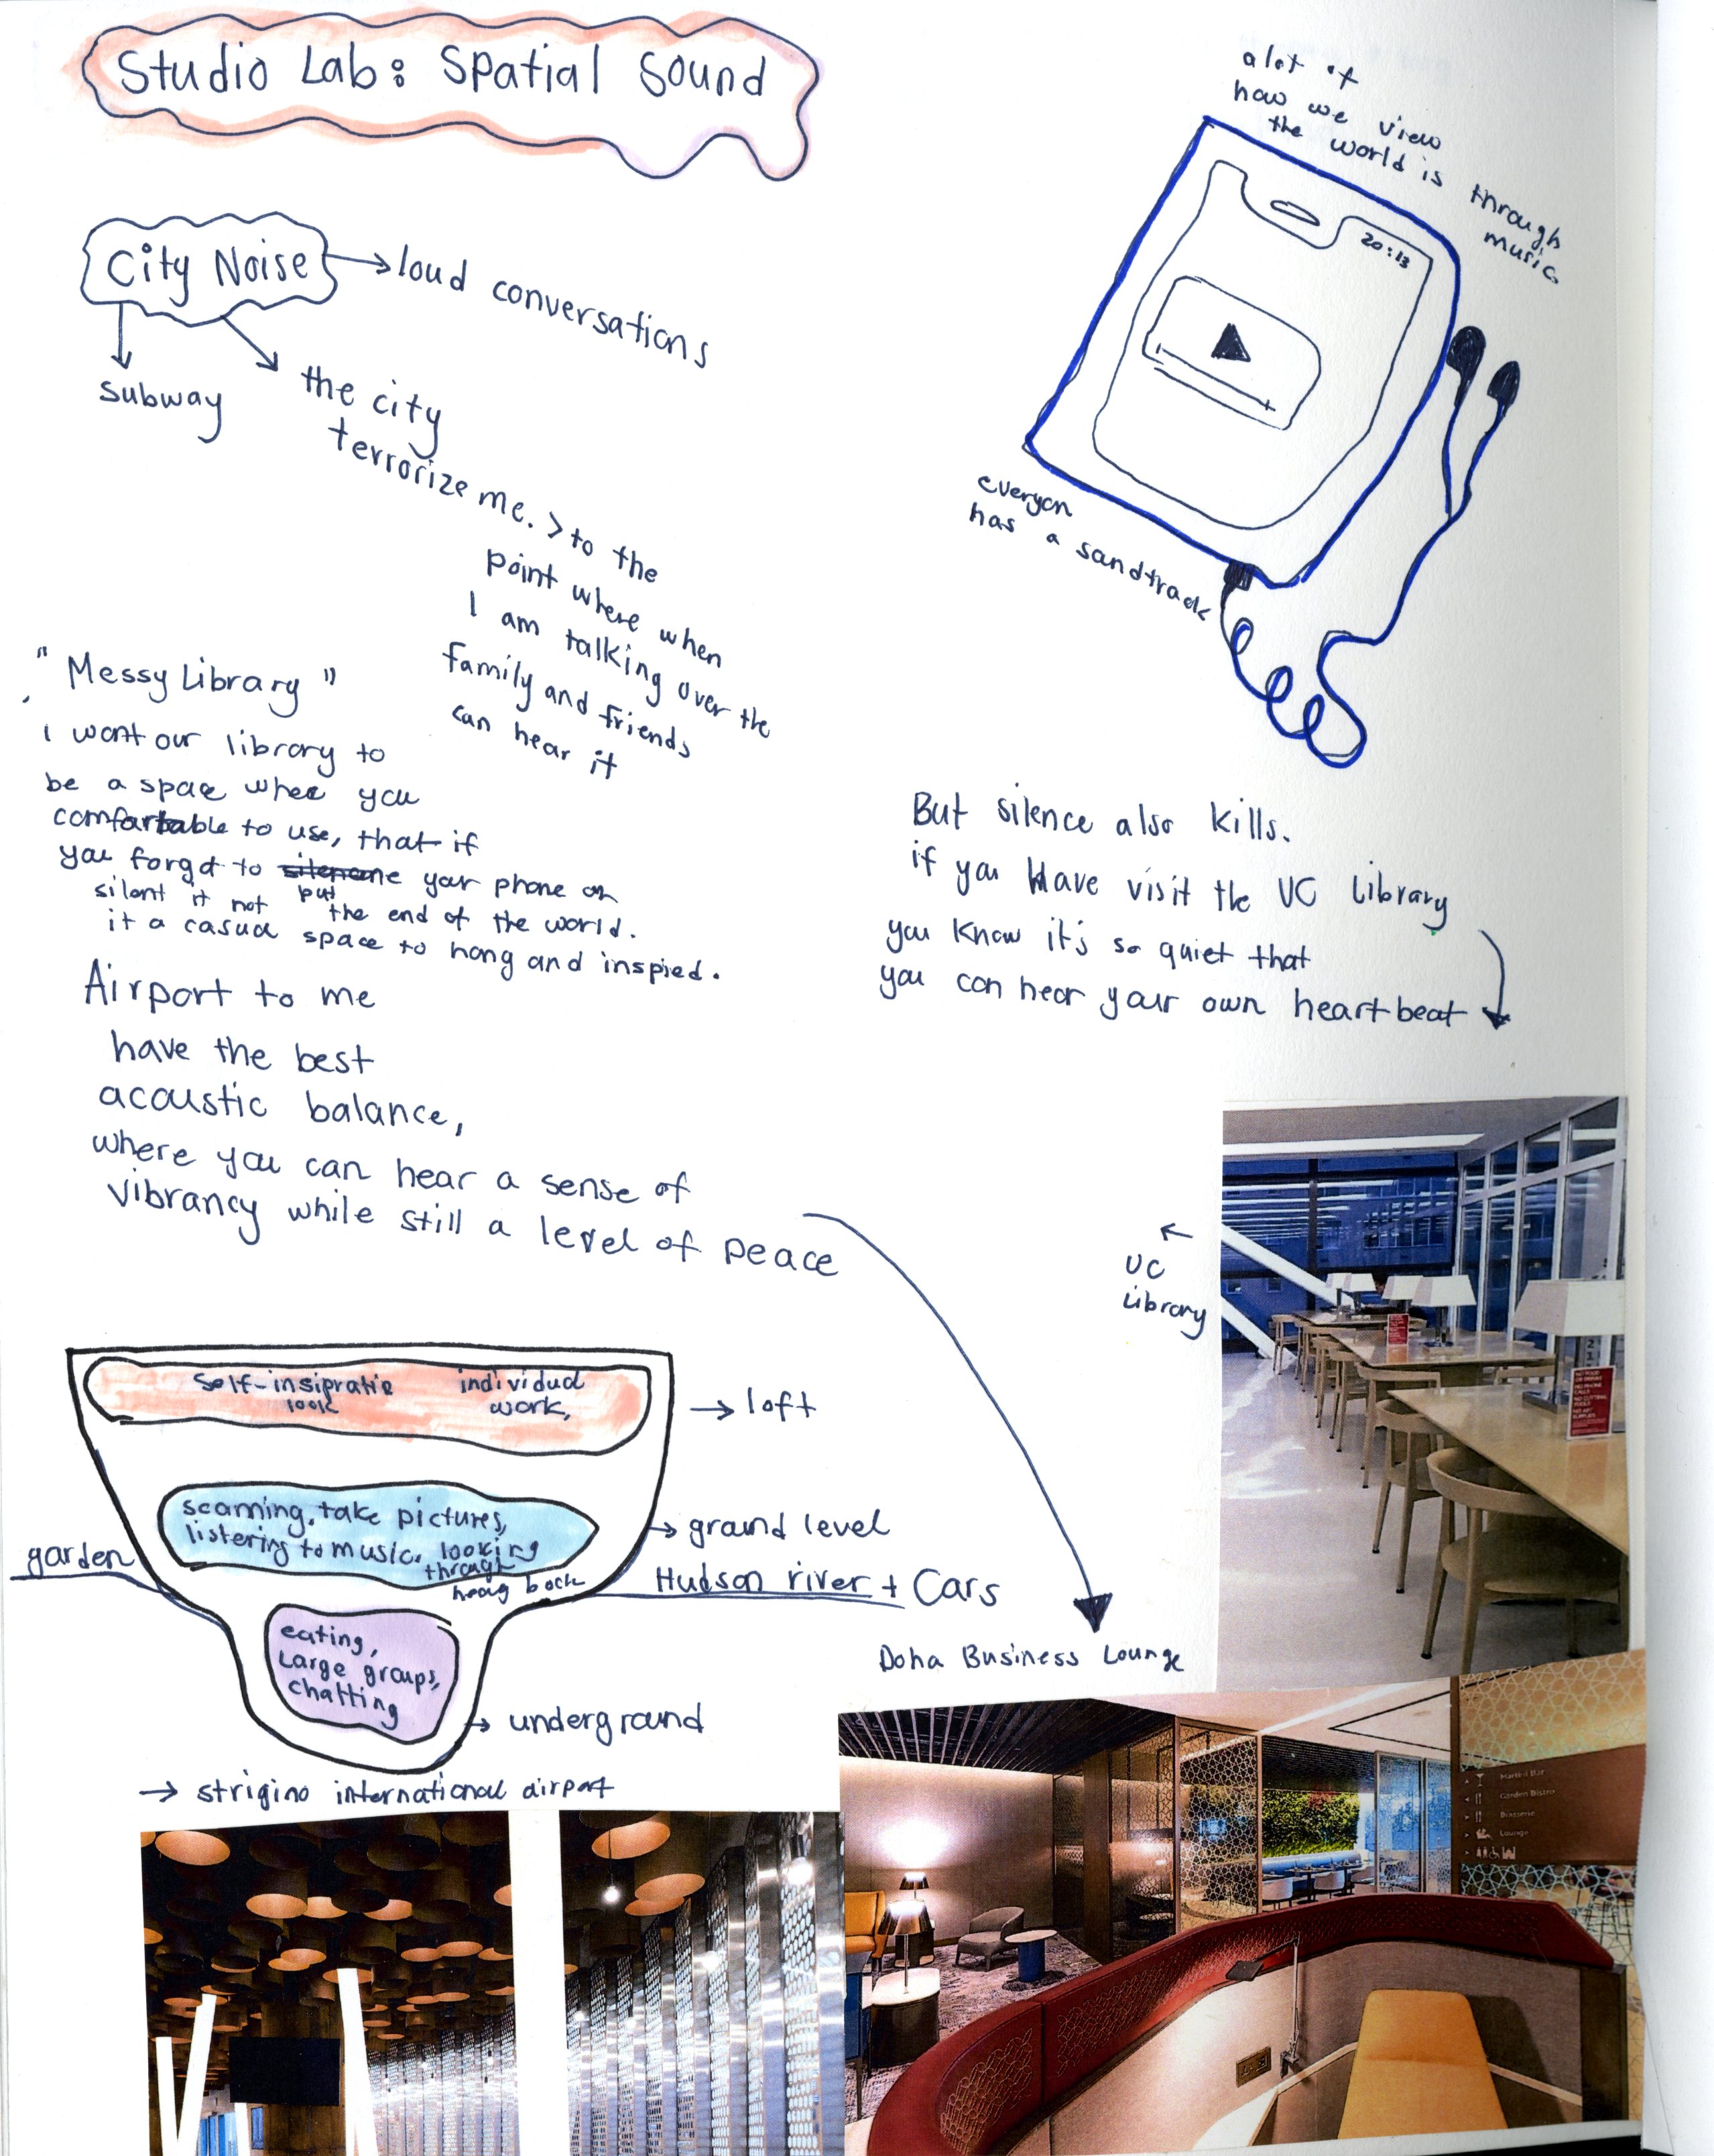 Studio Lab: Spatial Sound
alot of
how we view
the world is
through
music
20:13
everyon
has a sandtrack
City Noise
loud conversations
subway
the city
terrorize me. > to the
point where when
I am talking over the
family and friends
can hear it
"Messy Library"
i want our library to
be a space whee you
comfortable to use, that if
you forgot to your phone on
put
silent it not the end of the world.
it a casual space to hang and inspied.
But silence also kills.
if you Have visit the UC Library
you know it's so quiet that
you can hear your own heartbeat
Airport to me
have the best
acoustic balance,
where you can hear a sense of
vibrancy while still a level of peace
UC
Library
NO FOOD
OR DRINKS
NO PHONE
CALLS
NO CUTTING
TOOLS
NO ART
SUPPLIES
self-insipratio
look
individual
work,
loft
scanning, take pictures,
listering to music, looking
through
ground level
garden
Hudson river + Cars
eating,
Large groups,
chatting
underground
Doha Business Lounge
strigino international airport
Martini Bar
Garden Bistro
Brasserie
Lounge